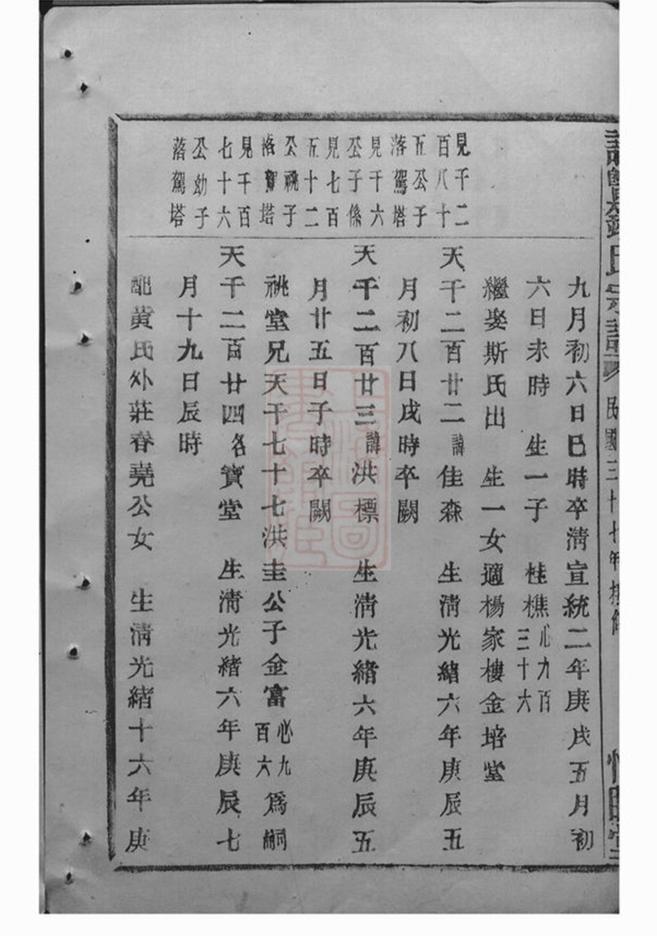 氏宗譜 民國三十七年
見千二
百八十
五公子
落駕塔
見千六
公子係
見七百
五十二
公祧子
落賀塔
見千百
七十六
公幼子
落駕塔
九月初六日巳時卒清宣統二年庚戌五月初
六日未時 生一子 桂樵心九百三十六
繼娶斯氏出 生一女適楊家樓金培堂
天千二百廿二諱佳森 生清光緒六年庚辰五
月初八日戌時卒闕
天千二百廿三諱洪標 生清光緒六年庚辰五
月廿五日子時卒闕
祧堂兄天千七十七洪圭公子金富心九百六為嗣
天千二百廿四名寶堂 生清光緒六年庚辰七
月十九日辰時
配黃氏外莊春堯公女 生清光緒十六年庚